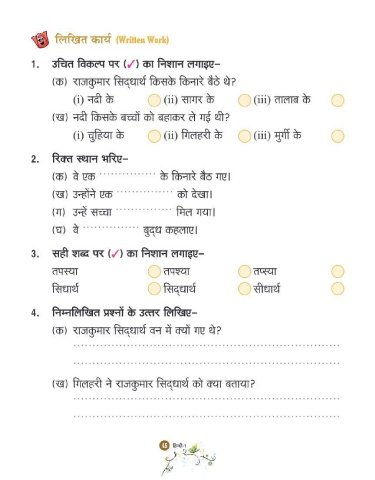 लिखित कार्य (Written Work)
1. उचित विकल्प पर (✓) का निशान लगाइए–
(क) राजकुमार सिद्धार्थ किसके किनारे बैठे थे?
(i) नदी के (ii) सागर के (iii) तालाब के
(ख) नदी किसके बच्चों को बहाकर ले गई थी?
(i) चुहिया के (ii) गिलहरी के (iii) मुर्गी के
2. रिक्त स्थान भरिए–
(क) वे एक ............... के किनारे बैठ गए।
(ख) उन्होंने एक ............... को देखा।
(ग) उन्हें सच्चा ............... मिल गया।
(घ) वे ............... बुद्ध कहलाए।
3. सही शब्द पर (✓) का निशान लगाइए–
तपस्या तपश्या तप्स्या
सिधार्थ सिद्धार्थ सीधार्थ
4. निम्नलिखित प्रश्नों के उत्तर लिखिए–
(क) राजकुमार सिद्धार्थ वन में क्यों गए थे?
(ख) गिलहरी ने राजकुमार सिद्धार्थ को क्या बताया?
45 हिन्दी-1